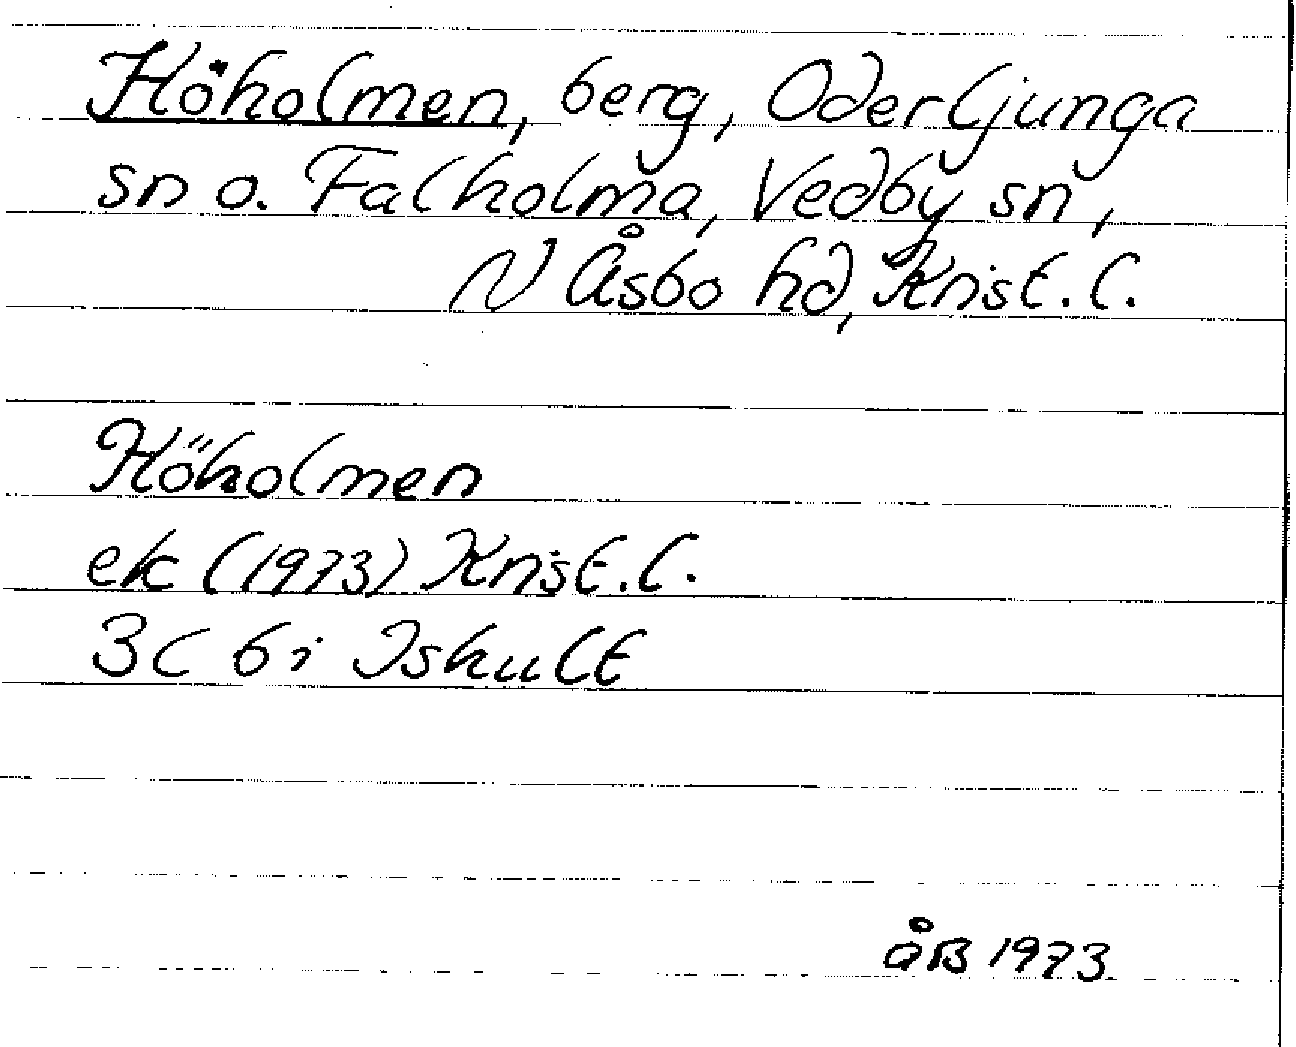 Höholmen, berg, Oderljunga
sn o. Falholma, Vedby sn,
N Åsbo hd, Krist. l.
Höholmen
ek (1973) Krist. l.
3C 6i Iskult
åB 1973